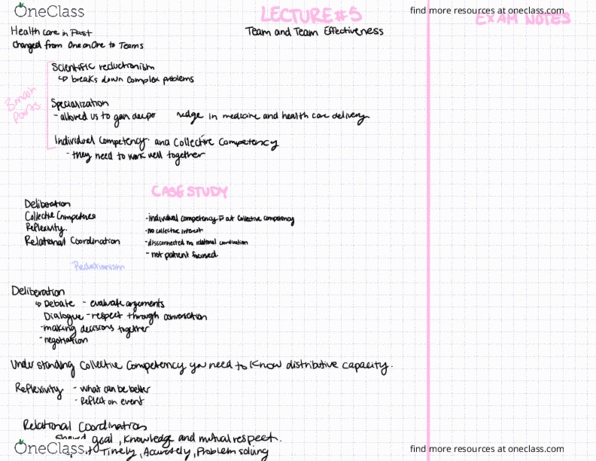 OneClass
find more resources at oneclass.com
LECTURE #5
EXAM NOTES
Healthcare in Past
Team and Team Effectiveness
changed from One on One to Teams
Scientific reductionism
↳ breaks down complex problems
Small Parts
Specialization
- allowed us to gain deeper in medicine and health care delivery
Individual Competency and Collective Competency
- they need to work well together
CASE STUDY
Deliberation
Collective Competence
- individual competency collective competency
Reflexivity
- no collective
Relational Coordination
- disconnected no relational coordination
- not patient focused
Reductionism
Deliberation
↳ Debate - evaluate arguments
Dialogue - respect through conversation
- making decisions together
- negotiation
Understanding Collective Competency you need to know distributive capacity.
Reflexivity - what can be better
- Reflect on event
Relational Coordination
goal, Knowledge and mutual respect.
Timely, Accurately, Problem solving
OneClass
find more resources at oneclass.com